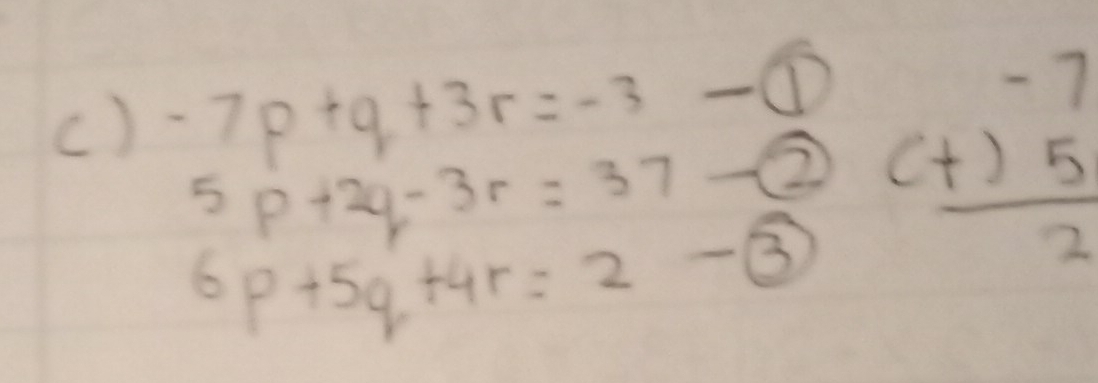 c) -7p+q+3r=-3 -① -7
5p+2q-3r=37 -② (+) 5
6p+5q+4r=2 -③ 2